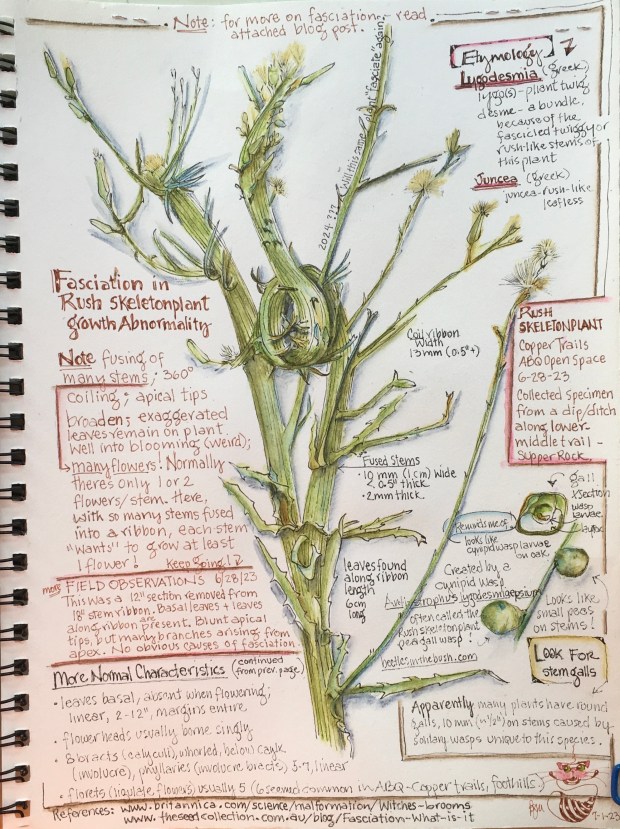 Note: for more on fasciation, read
attached blog post.
Etymology
Lygodesmia (greek)
lygo(s) - pliant twig
desme - a bundle,
because of the
fascicled twiggy or
rush-like stems of
this plant
Juncea (greek)
juncea-rush-like
leafless
2024 ??? Will this same plant "fasciate" again?
Fasciation in
Rush Skeletonplant
growth Abnormality
Note fusing of
many stems; 360°
coiling; apical tips
broaden; exaggerated
leaves remain on plant
well into blooming (weird);
many flowers! Normally
theres only 1 or 2
flowers/stem. Here,
with so many stems fused
into a ribbon, each stem
"wants" to grow at least
1 flower! Keep Going!
Coil ribbon
width
13mm (0.5"+)
Rush
Skeletonplant
Copper Trails
ABQ Open Space
6-28-23
Collected specimen
from a dip/ditch
along lower-
middle trail -
Supper Rock.
Fused Stems
• 10 mm (1cm) wide
0.5" thick
• 2mm thick.
gall
x section
wasp
larvae
Reminds me of
looks like
cynipid wasp larvae
on oak.
leaves found
along ribbon
length
6cm
long
Created by a
cynipid wasp
often called the
Rush skeletonplant
pea gall wasp!
beetlesinthebush.com
Looks like
small peas
on stems!
Look For
stem galls
Apparently many plants have round
galls, 10mm (~½") on stems caused by
solitary wasps unique to this species.
more FIELD OBSERVATIONS 6/28/23
This was a 12" section removed from
18" stem ribbon. Basal leaves + leaves
along ribbon are present. Blunt apical
tips, but many branches arising from
apex. No obvious causes of fasciation.
More Normal Characteristics (continued
from prev. page)
• leaves basal, absent when flowering;
linear, 2-12", margins entire
• flowerheads usually borne singly
• 8 bracts (calyculi), whorled, below
(involucre), phyllaries (involucre bracts) 5-7, linear
• florets (ligulate flowers) usually 5 (6 seemed common in ABQ-Copper trails, foothills)
References: www.britannica.com/science/malformation/Witches-brooms
www.theseedcollection.com.au/blog/Fasciation-What-is-it
7-1-23